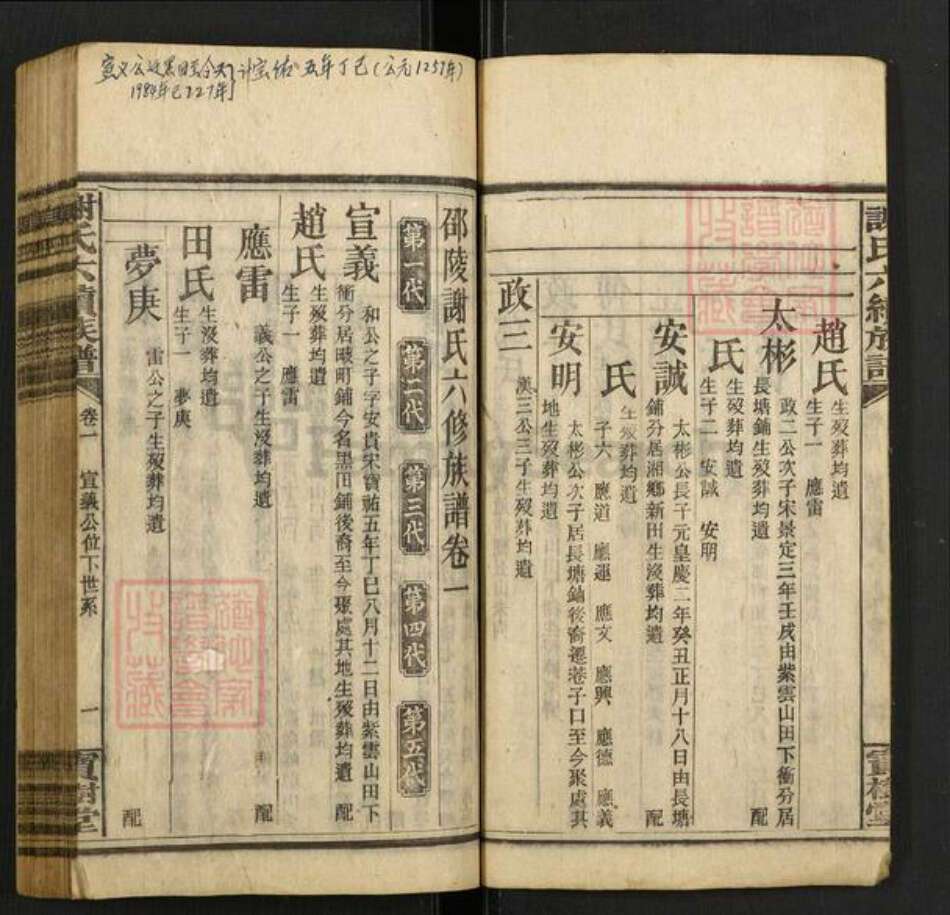 謝氏六續族譜
趙氏
生歿葬均遺
生子一 應雷
太彬
政二公次子宋景定三年壬戌由紫雲山田下衝分居
長塘鋪生歿葬均遺 配
氏
生歿葬均遺
生子二 安誠 安明
安誠
太彬公長子元皇慶二年癸丑正月十八日由長塘
鋪分居湘鄉新田生沒葬均遺 配
氏
生歿葬均遺
子六 應道 應運 應文 應興 應德 應義
安明
太彬公次子居長塘鋪後裔遷巷子口至今聚處其
地生歿葬均遺
政三
漢三公三子生歿葬均遺
寶樹堂
宣义公迁黑田至今天 计宝佑五年丁巳(公元1257年)
1984年已727年
邵陵謝氏六修族譜卷一
第一代 第二代 第三代 第四代 第五代
宣義
和公之子字安貴宋寶祐五年丁巳八月十二日由紫雲山田下
衝分居畯町鋪今名黑田鋪後裔至今聚處其地生歿葬均遺 配
趙氏
生歿葬均遺
生子一 應雷
應雷
義公之子生沒葬均遺 配
田氏
生沒葬均遺
生子一 夢庚
夢庚
雷公之子生歿葬均遺 配
謝氏六續族譜 卷一 宣義公位下世系 一 寶樹堂